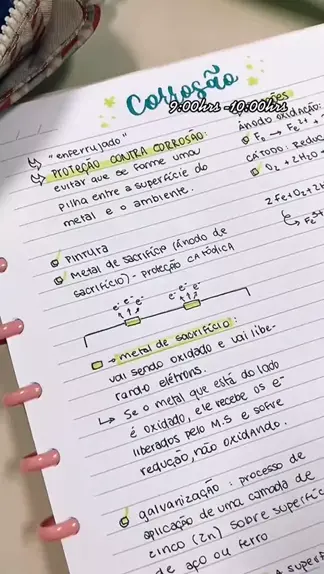 Corrosão
9:00hrs -10:00hrs
"enferrujado"
PROTEÇÃO CONTRA CORROSÃO:
evitar que se forme uma
pilha entre a superfície do
metal e o ambiente.
Pintura
Metal de sacrifício (ânodo de
sacrifício) - proteção CATÓDICA
e- e- e-
e- e- e-
→ metal de sacrifício:
vai sendo oxidado e vai libe-
rando elétrons.
↳ Se o metal que está do lado
é oxidado, ele recebe os e-
liberados pelo M.S e sofre
redução, não oxidando.
galvanização: processo de
aplicação de uma camada de
zinco (Zn) sobre superfíc
de aço ou ferro
ÂNODO OXIDAÇÃO:
Fe → Fe2+
CÁTODO: Reduç
O2 + 2H2O +
2Fe + O2 + 2H
↳ Fe2+